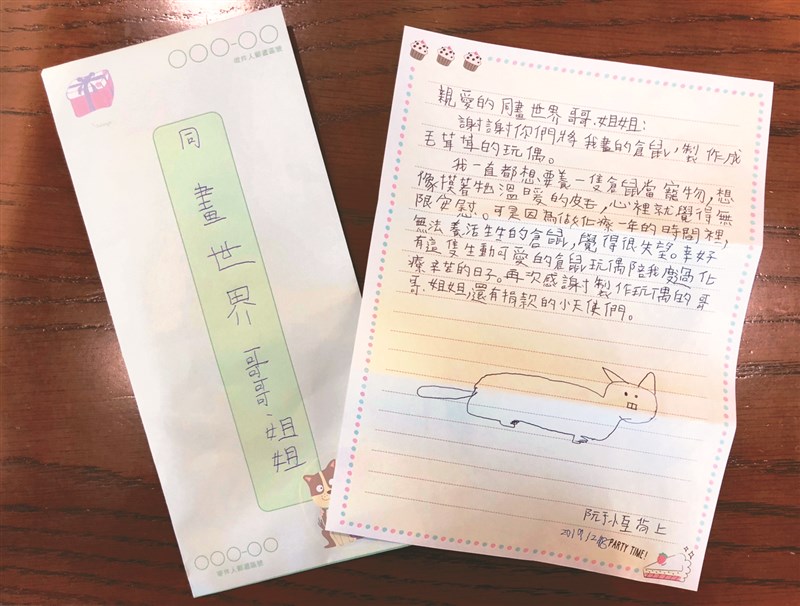 收件人郵遞區號
同畫世界 哥哥、姐姐
寄件人郵遞區號
親愛的同畫世界哥哥、姐姐:
謝謝你們將我畫的倉鼠,製作成
毛茸茸的玩偶。
我一直都想要養一隻倉鼠當寵物,想
像摸著牠溫暖的皮毛,心裡就覺得無
限安慰。可是因為做化療一年的時間裡,
無法養活生生的倉鼠,覺得很失望。幸好
有這隻生動可愛的倉鼠玩偶陪我度過化
療辛苦的日子。再次感謝製作玩偶的哥
哥、姐姐,還有捐款的小天使們。
上
2019.12
PARTY TIME!